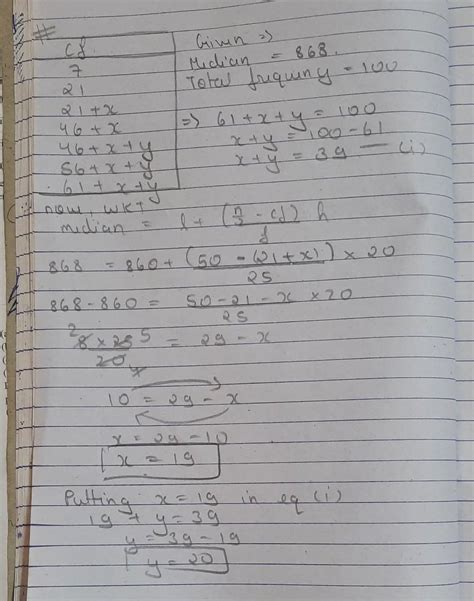 #
cf.
7
21
21 + x
46 + x
46 + x + y
56 + x + y
61 + x + y
Given ⇒
Median = 868.
Total frequency = 100
⇒ 61 + x + y = 100
x + y = 100 - 61
x + y = 39 — (i)
now, wkt
median = l + (n/2 - cf) h
f
868 = 860 + (50 - (21 + x)) × 20
25
868 - 860 = 50 - 21 - x × 20
25
2 8 × 25 5 = 29 - x
20
10 = 29 - x
x = 29 - 10
x = 19
Putting x = 19 in eq (i)
19 + y = 39
y = 39 - 19
y = 20